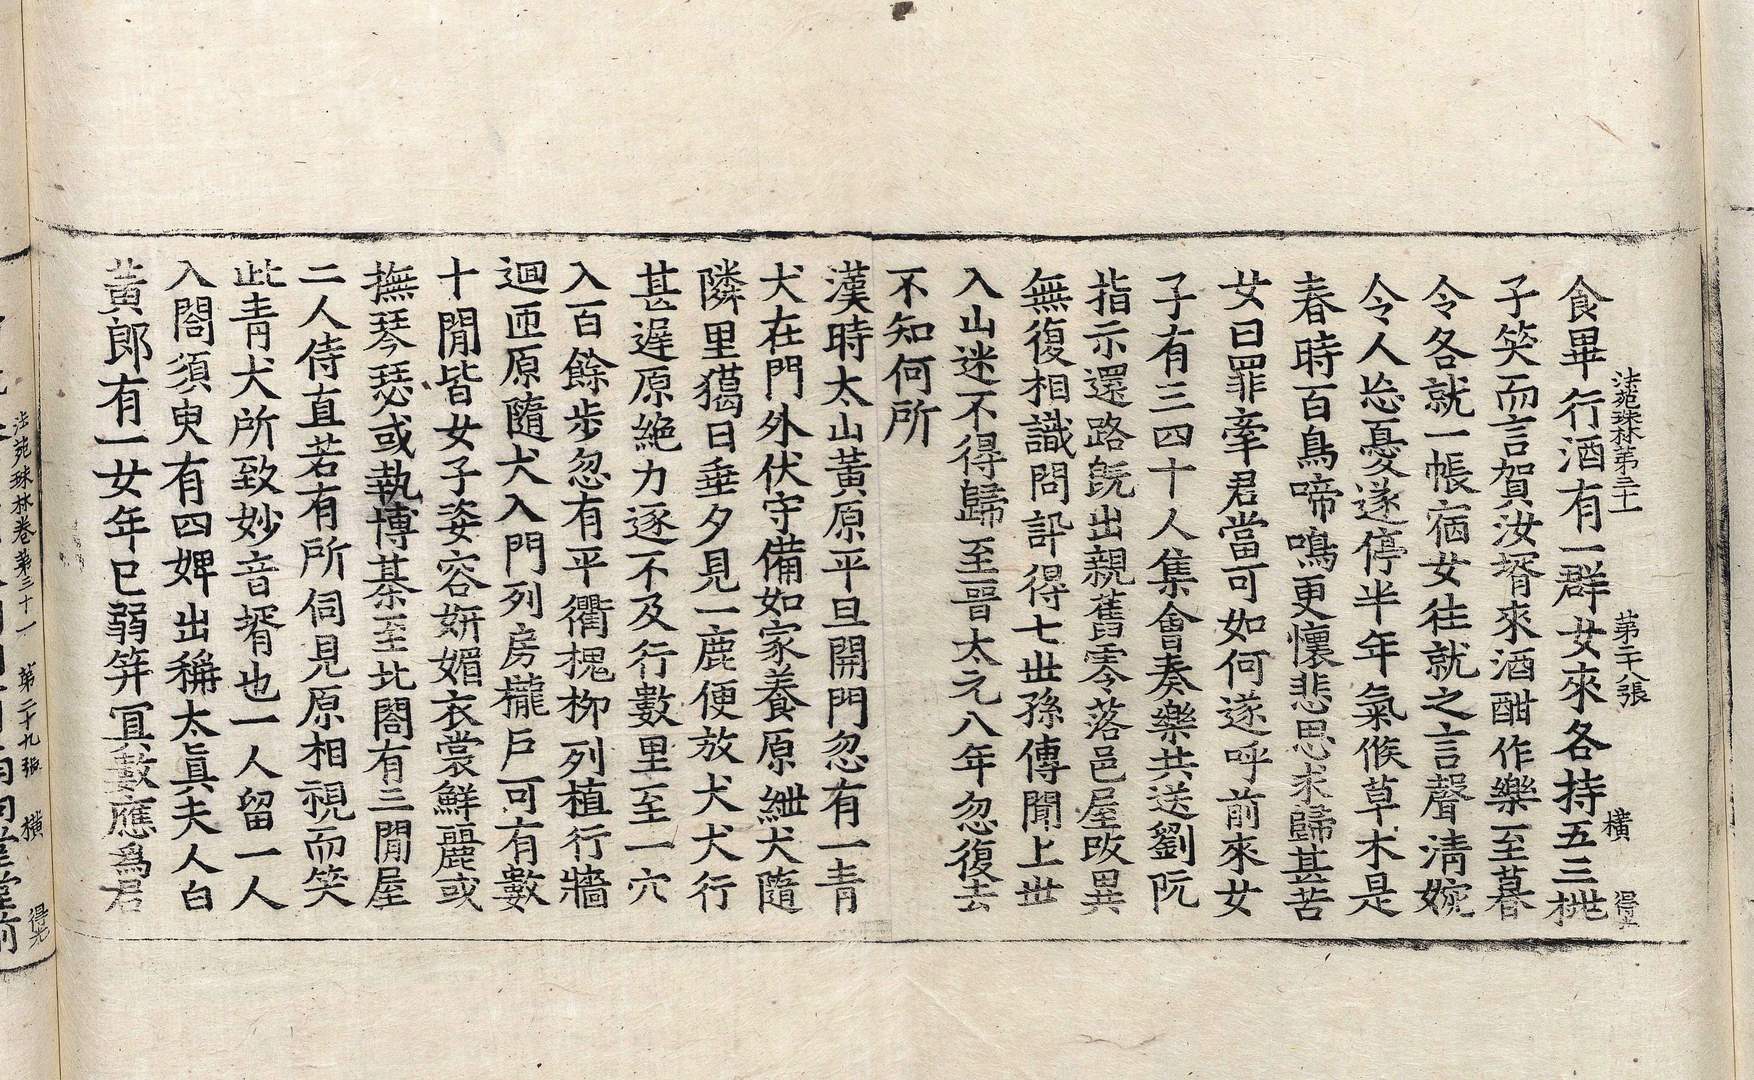 法苑珠林第三十一 第二十八張 橫 得
食畢行酒有一群女來各持五三桃
子笑而言賀汝壻來酒酣作樂至暮
令各就一帳宿女往就之言聲清婉
令人忘憂遂停半年氣候草木是
春時百鳥啼鳴更懷悲思求歸甚苦
女曰罪牽君當可如何遂呼前來女
子有三四十人集會奏樂共送劉阮
指示還路旣出親舊零落邑屋改異
無復相識問訊得七世孫傳聞上世
入山迷不得歸至晉太元八年忽復去
不知何所
漢時太山黃原平旦開門忽有一青
犬在門外伏守備如家養原紲犬隨
隣里獵日垂夕見一鹿便放犬犬行
甚遟原絶力逐不及行數里至一穴
入百餘步忽有平衢槐栁列植行牆
迴匝原隨犬入門列房櫳戶可有數
十閒皆女子姿容妍媚衣裳鮮麗或
撫琴瑟或執博棊至北閤有三閒屋
二人侍直若有所伺見原相視而笑
此青犬所致妙音壻也一人留一人
入閤須臾有四婢出稱太眞夫人白
黃郎有一女年已弱笄冥數應爲君
法苑珠林卷第三十一 第二十九張 橫 得光